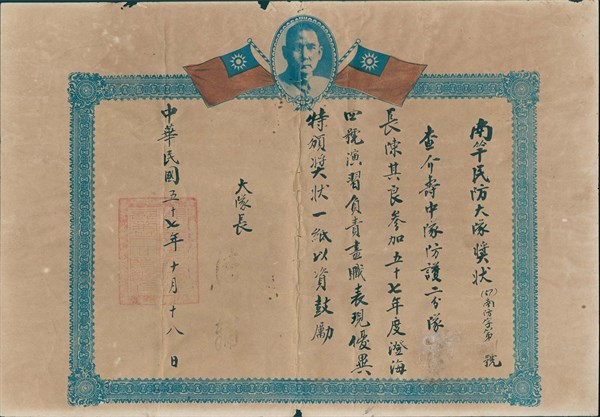 南竿民防大隊獎狀
(57)南防字第 號
查介壽中隊防護二分隊
長陳其良參加五十七年度澄海
四號演習負責盡職表現優異
特頒獎狀一紙以資鼓勵
大隊長
中華民國五十七年十月十八日